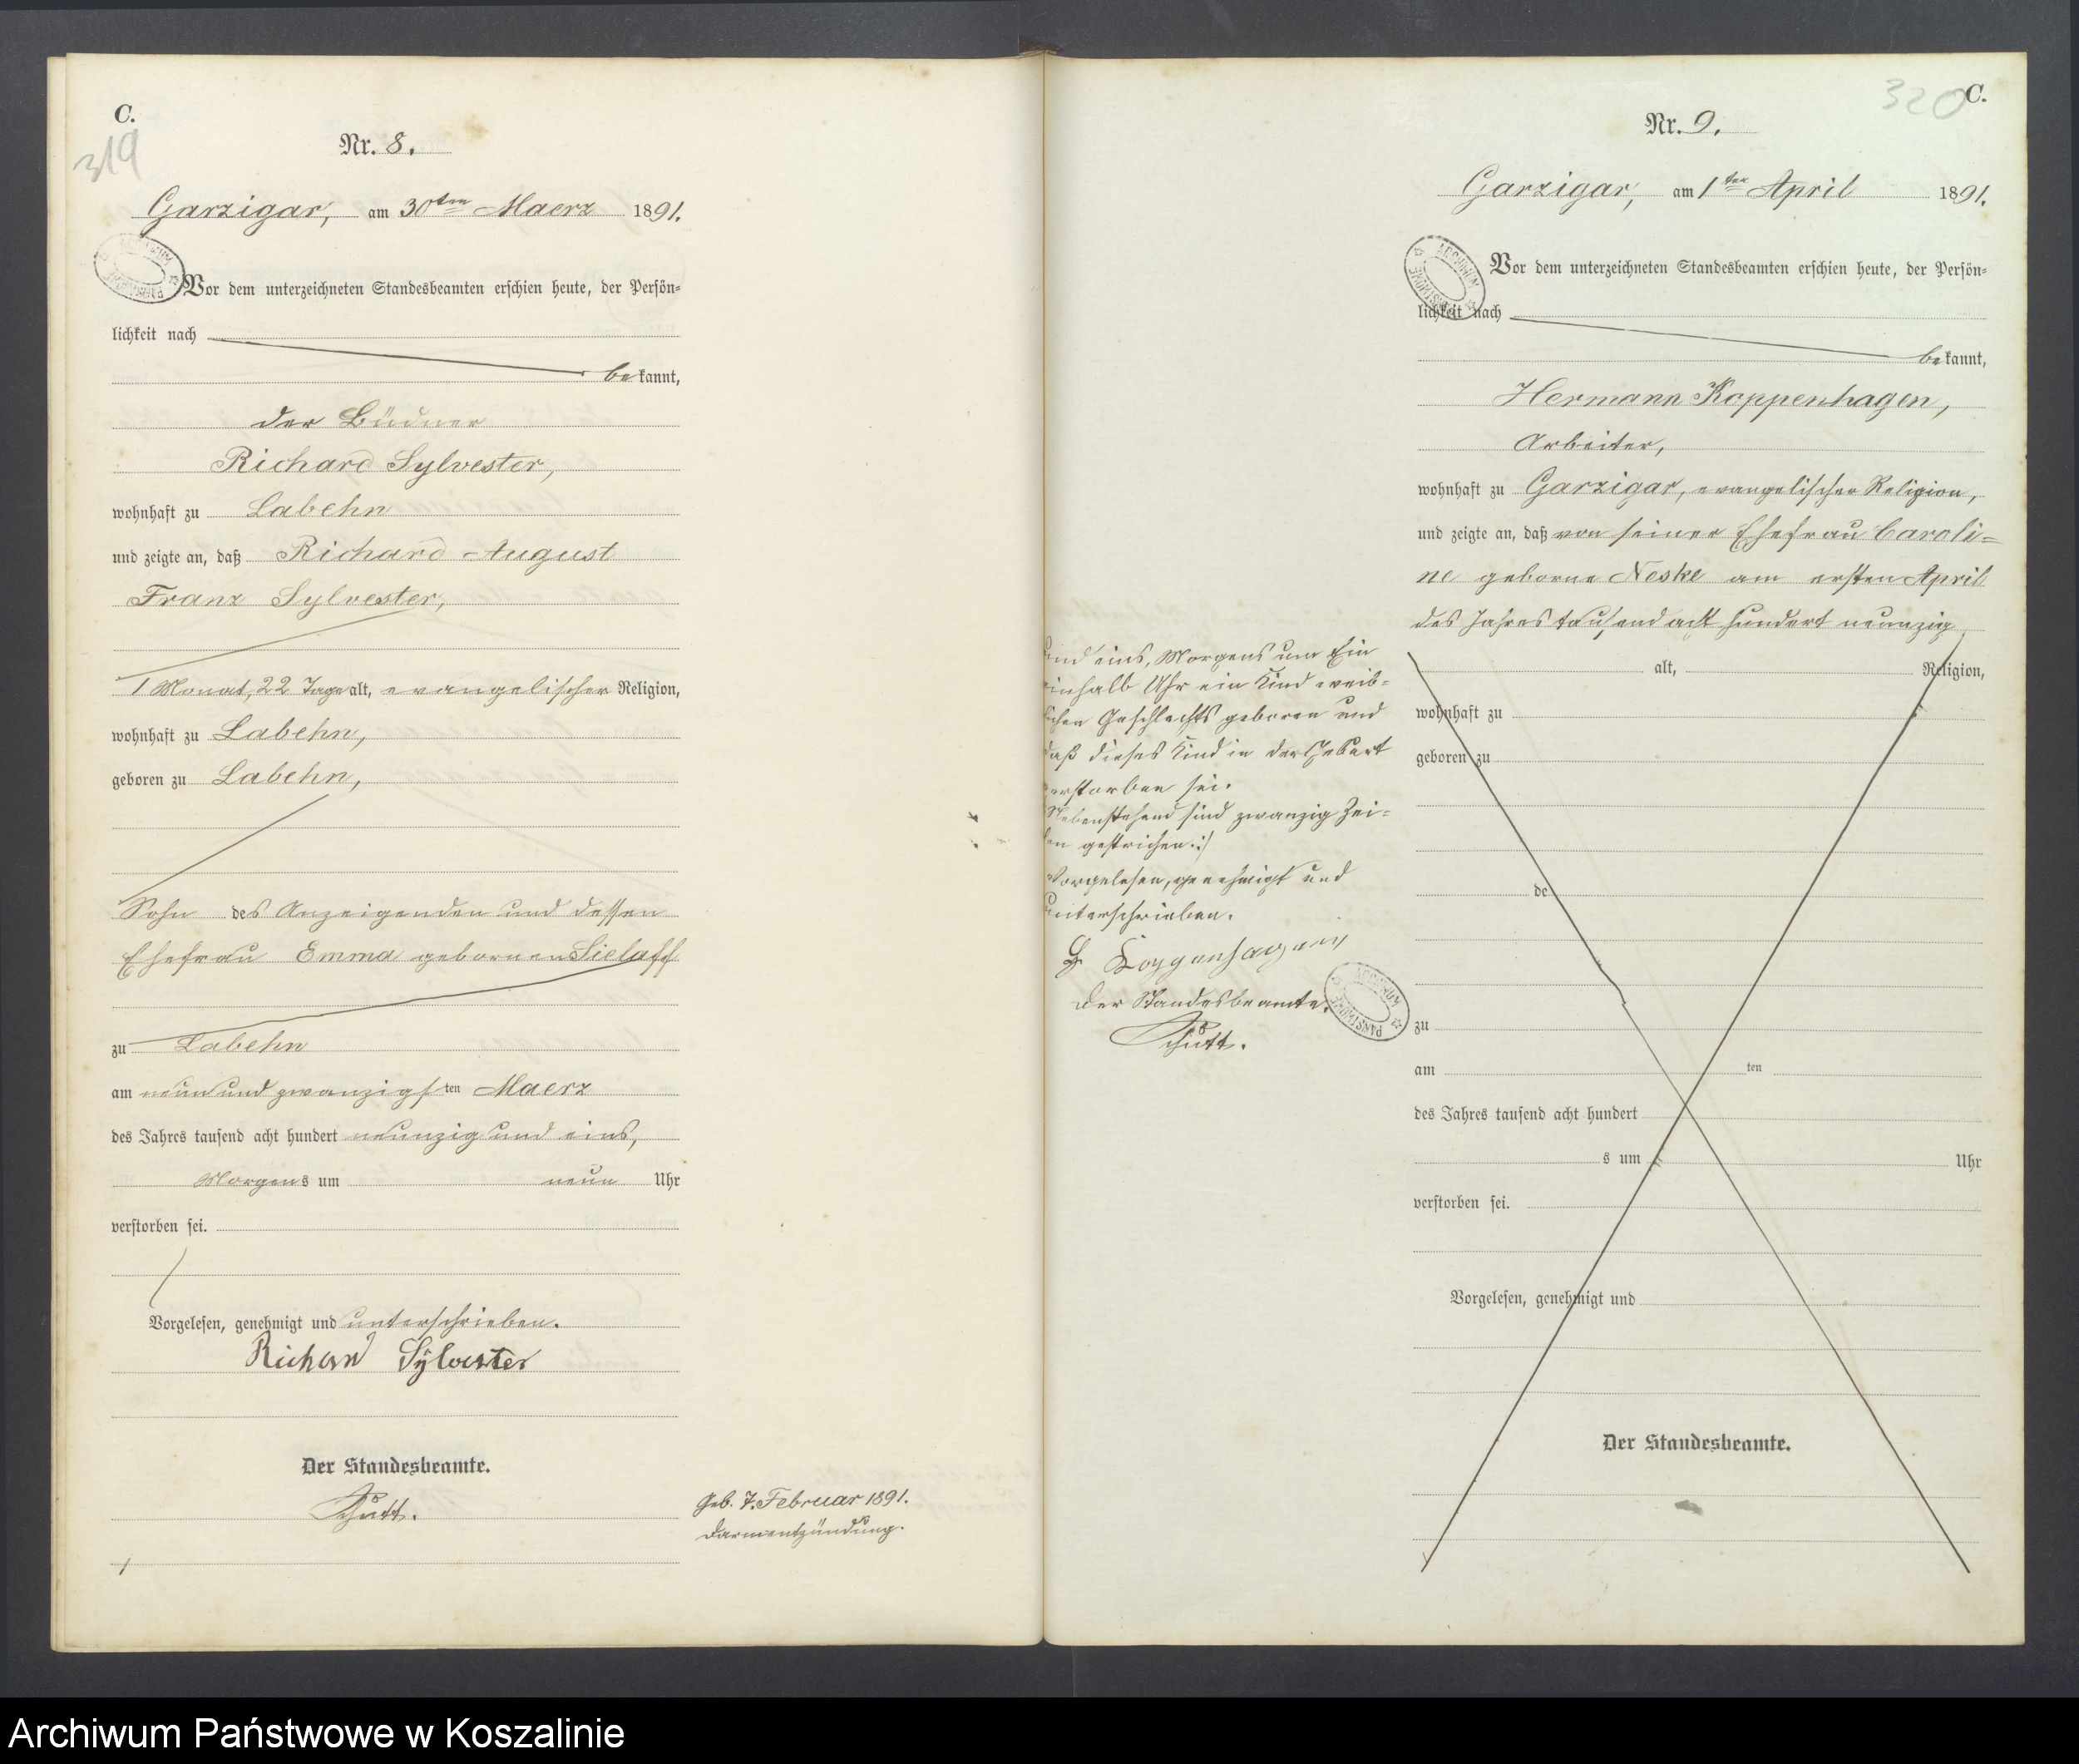 C.
319
Nr. 8.
Garzigar, am 30ten Maerz 1891.
ARCHIWUM PAŃSTWOWE
Vor dem unterzeichneten Standesbeamten erschien heute, der Persön-
lichkeit nach
bekannt,
der Büdner
Richard Sylvester,
wohnhaft zu Labehn
und zeigte an, daß Richard August
Franz Sylvester,
1 Monat, 22 Tage alt, evangelischer Religion,
wohnhaft zu Labehn,
geboren zu Labehn,
Sohn des Anzeigenden und dessen
Ehefrau Emma gebornen Sielaff
zu Labehn
am neun und zwanzigsten Maerz
des Jahres tausend acht hundert neunzig und eins,
Morgens um neun Uhr
verstorben sei.
Vorgelesen, genehmigt und unterschrieben.
Richard Sylvester
Der Standesbeamte.
Schütt.
Geb. 7. Februar 1891.
Darmentzündung.
320
C.
Nr. 9.
Garzigar, am 1ten April 1891.
ARCHIWUM PAŃSTWOWE
Vor dem unterzeichneten Standesbeamten erschien heute, der Persön-
lichkeit nach
bekannt,
Hermann Koppenhagen,
Arbeiter,
wohnhaft zu Garzigar, evangelischer Religion,
und zeigte an, daß von seiner Ehefrau Caroli-
ne geborne Neske am ersten April
des Jahres tausend acht hundert neunzig
und eins, Morgens um Ein
einhalb Uhr ein Kind weib-
lichen Geschlechts geboren und
daß dieses Kind in der Geburt
verstorben sei.
Nebenstehend sind zwanzig Zei-
len gestrichen.
Vorgelesen, genehmigt und
unterschrieben.
H Koppenhagen
Der Standesbeamte.
Schütt.
ARCHIWUM PAŃSTWOWE
alt, Religion,
wohnhaft zu
geboren zu
de
zu
am ten
des Jahres tausend acht hundert
s um Uhr
verstorben sei.
Vorgelesen, genehmigt und
Der Standesbeamte.
Archiwum Państwowe w Koszalinie